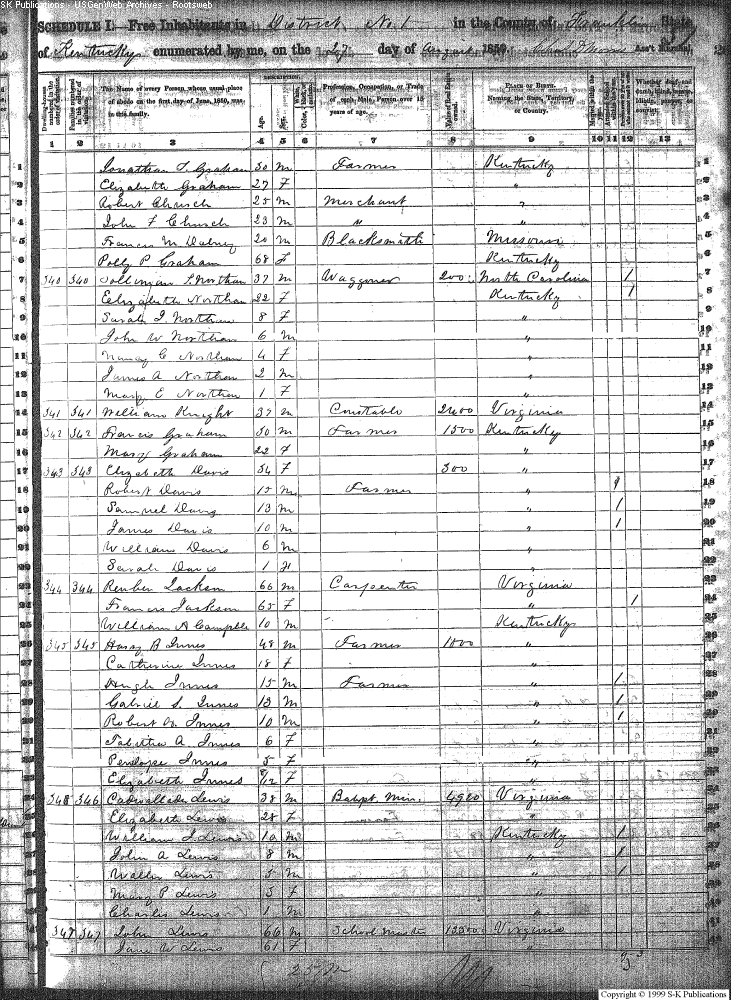 S-K Publications - USGenWeb Archives - Rootsweb
SCHEDULE I.—Free Inhabitants in District No. 1 in the County of Franklin State
of Kentucky enumerated by me, on the 27 day of August 1850. Ass't Marshal.
DESCRIPTION.
Dwelling-houses numbered in the order of visitation.
Families numbered in the order of visitation.
The Name of every Person whose usual place of abode on the first day of June, 1850, was in this family.
Age.
Sex.
Profession, Occupation, or Trade of each Male Person over 15 years of age.
Value of Real Estate owned.
PLACE OF BIRTH. Naming the State, Territory, or Country.
1 2 3 4 5 6 7 8 9 10 11 12 13
1 Jonathan T. Graham 30 M Farmer Kentucky 1
2 Elizabeth Graham 27 F " 2
3 Robert Church 25 M Merchant " 3
4 John F Church 23 M " " 4
5 Francis M 20 M Blacksmith Missouri 5
6 Polly P Graham 68 F Kentucky 6
7 340 340 Northan 37 M Waggoner 200 North Carolina / 7
8 Elizabeth Northan 22 F Kentucky / 8
9 Sarah J. Northan 8 F " 9
10 John W Northan 6 M " 10
11 Nancy C Northan 4 F " 11
12 James A Northan 2 M " 12
13 Mary E Northan 1 F " 13
14 341 341 William Knight 37 M Constable 2400 Virginia 14
15 342 342 Francis Graham 30 M Farmer 1500 Kentucky 15
16 Mary Graham 22 F " 16
17 343 343 Elizabeth Davis 34 F 300 " 17
18 Robert Davis 15 M Farmer " 18
19 Samuel Davis 13 M " / 19
20 James Davis 10 M " / 20
21 William Davis 6 M " 21
22 Sarah Davis 1 "
23 344 344 Reuben Jackson 66 M Carpenter Virginia
24 Francis Jackson 65 F " /
25 William A Campbell 10 M Kentucky
26 345 345 Harry B Innes 48 M Farmer 1000 "
Catherine Innes 18 F "
Hugh Innes 15 M Farmer " /
Gabriel S. Innes 13 M " /
Robert Innes 10 M " /
Tabitha A Innes 6 F "
Penelope Innes 5 F "
Elizabeth Innes F "
346 346 Cadwallader Lewis 38 M Bapt. Min. Virginia
Elizabeth Lewis 28 F "
William J Lewis 10 M Kentucky /
John A Lewis 8 M " /
Walter Lewis 5 M " /
Mary P Lewis 3 F "
Charles Lewis 1 M "
347 347 John Lewis 66 M School Master Virginia
Jane W Lewis 61 F "
Copyright © 1999 S-K Publications